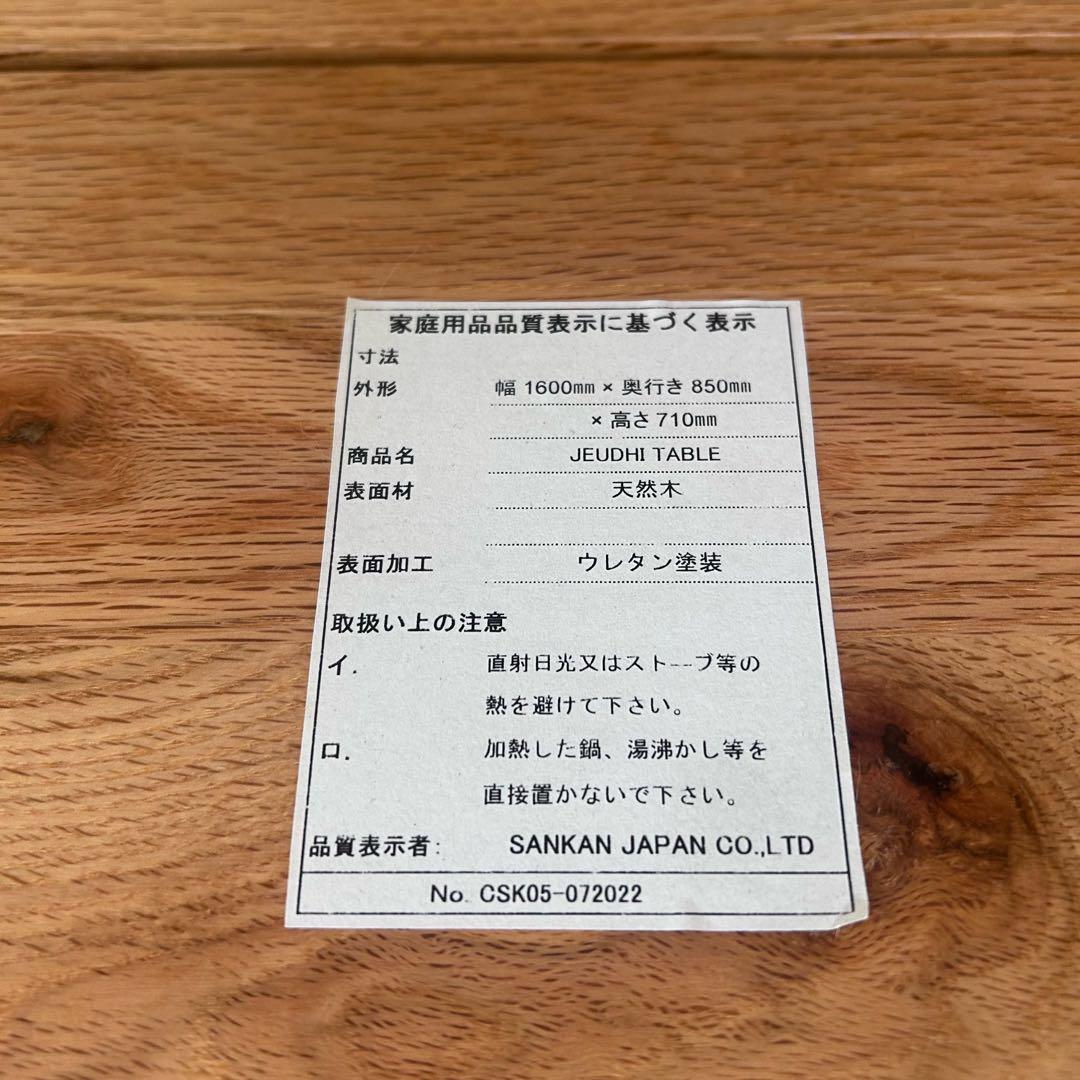 家庭用品品質表示に基づく表示
寸法
外形 幅 1600㎜ × 奥行き 850㎜
× 高さ 710㎜
商品名 JEUDHI TABLE
表面材 天然木
表面加工 ウレタン塗装
取扱い上の注意
イ. 直射日光又はストーブ等の
熱を避けて下さい。
ロ. 加熱した鍋、湯沸かし等を
直接置かないで下さい。
品質表示者: SANKAN JAPAN CO.,LTD
No. CSK05-072022